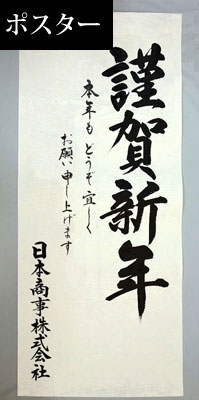 ポスター
謹賀新年
本年もどうぞ宜しく
お願い申し上げます
日本商事株式会社